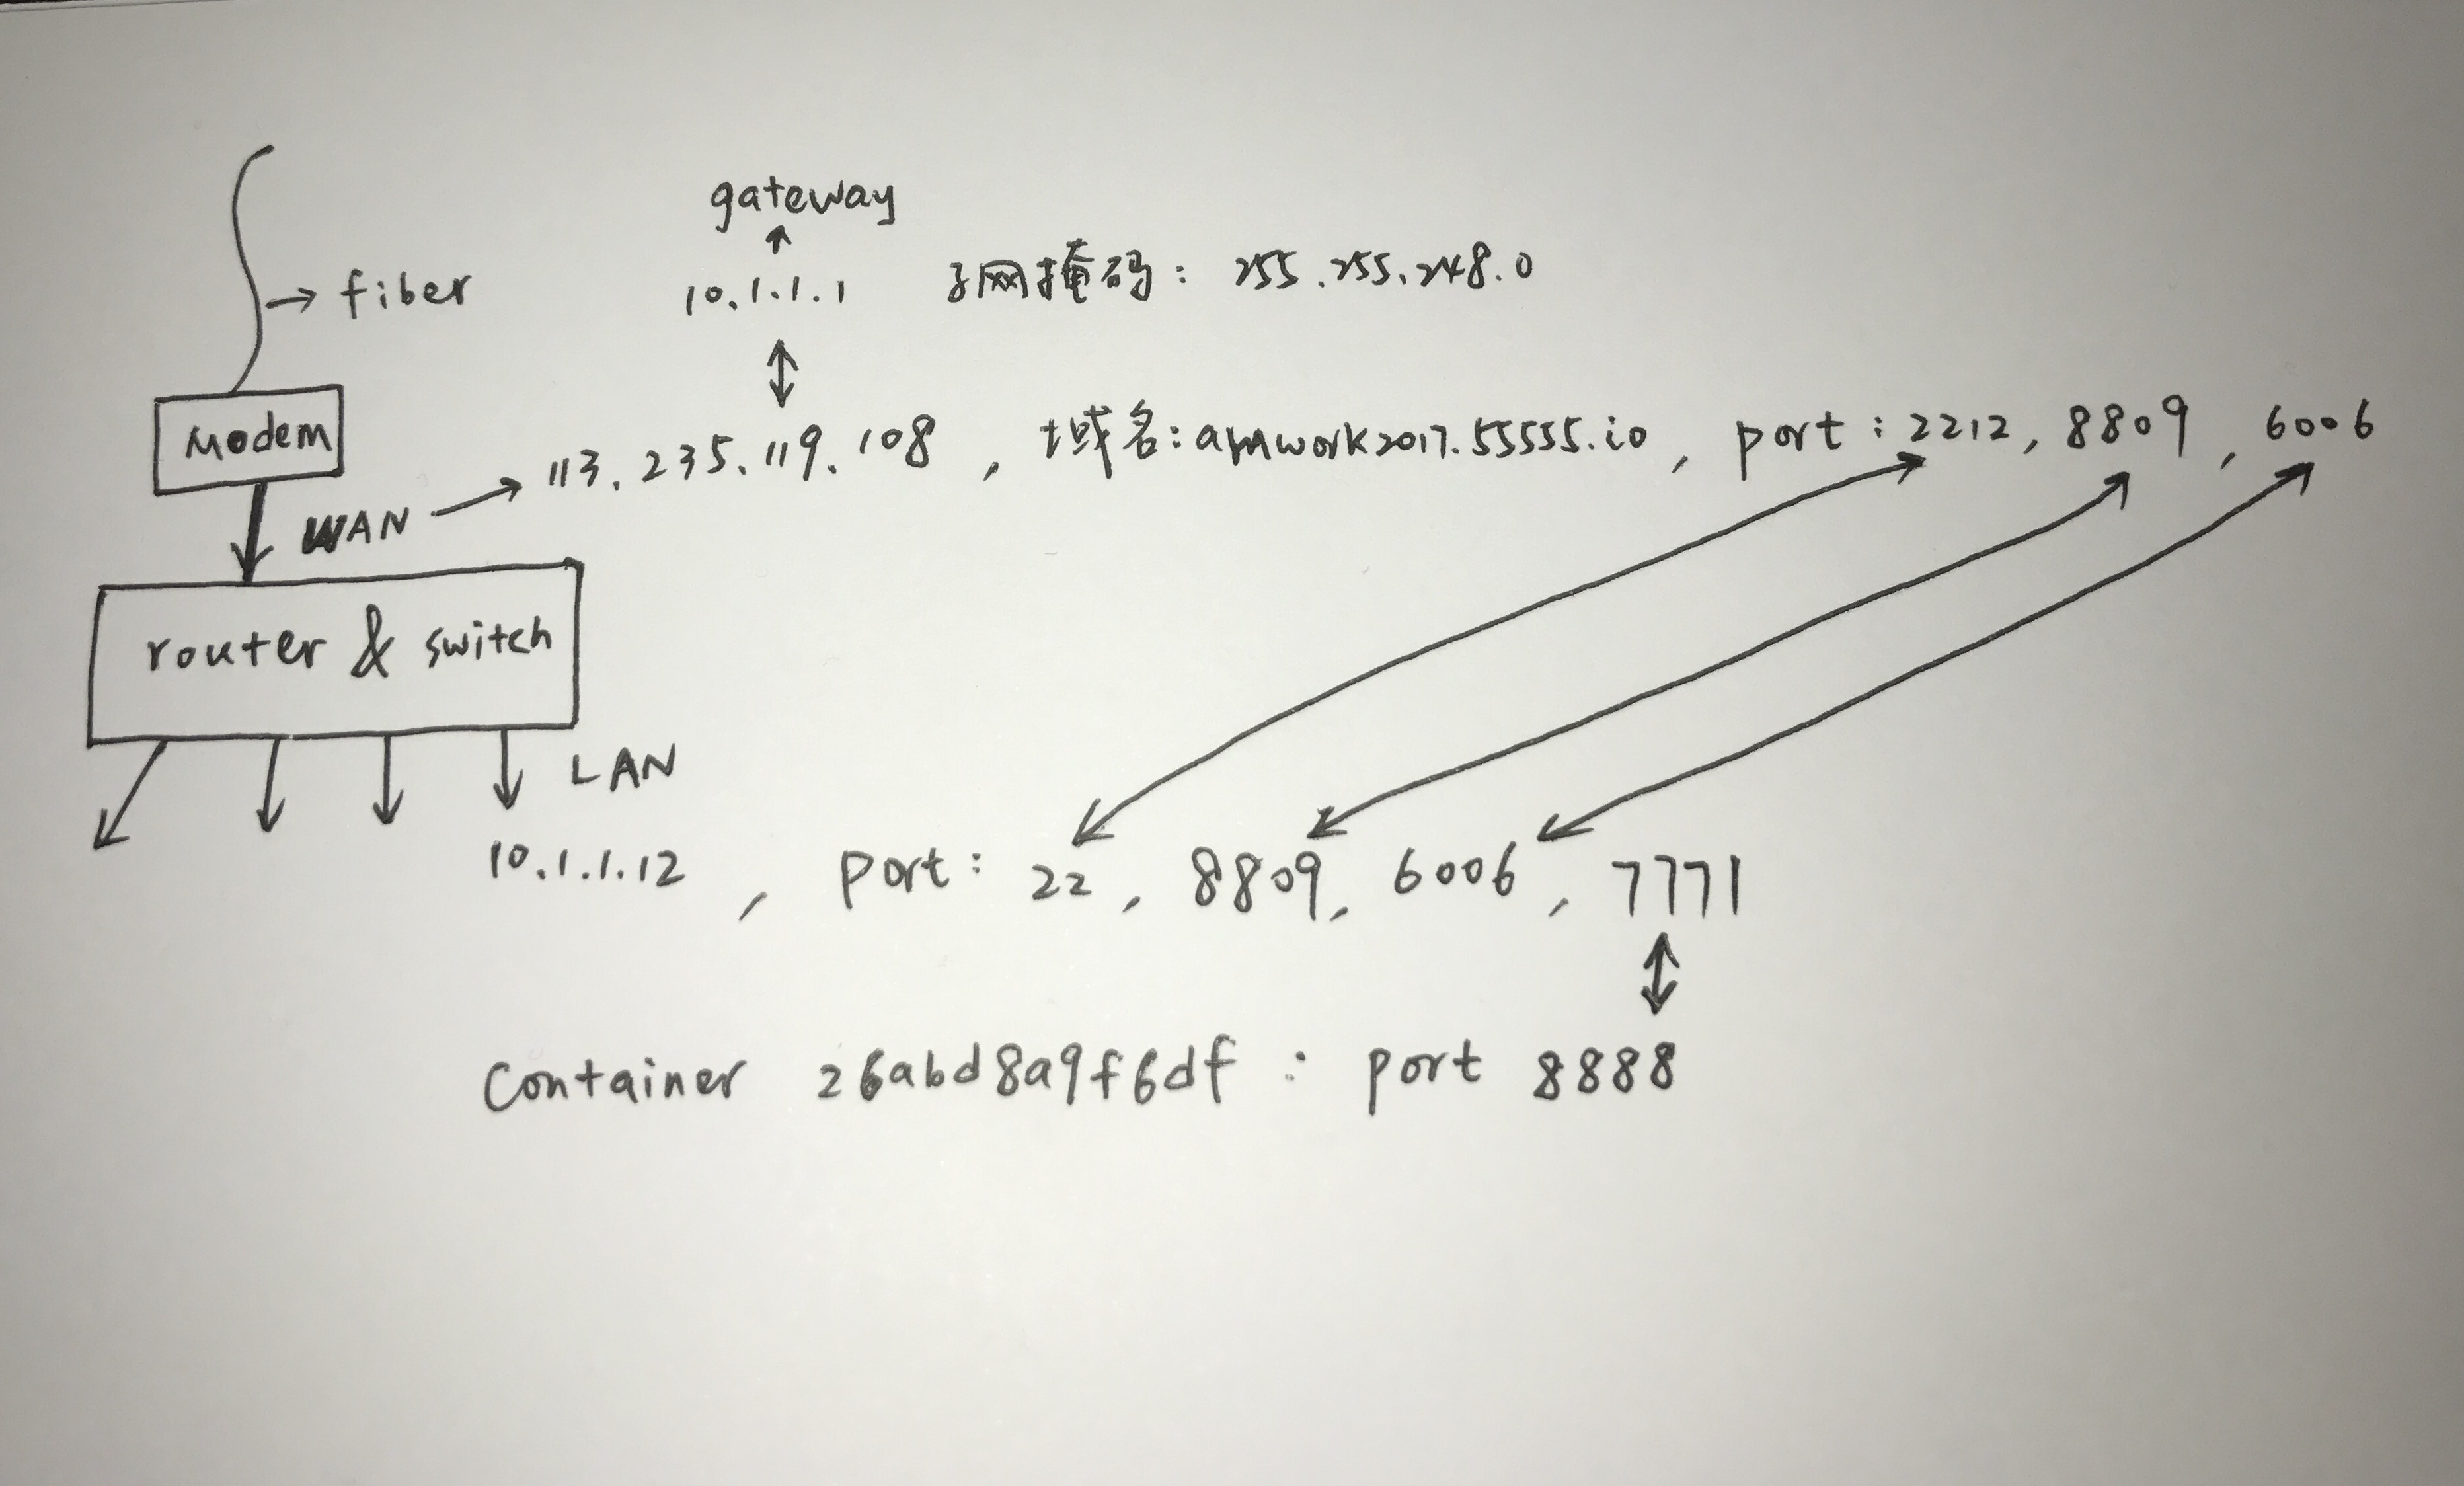 gateway
fiber
10.1.1.1 子网掩码: 255.255.248.0
Modem
113.235.119.108, 域名: amwork2017.55555.io, port: 2212, 8809, 6006
WAN
router & switch
LAN
10.1.1.12, port: 22, 8809, 6006, 7771
Container 26abd8a9f6df: port 8888